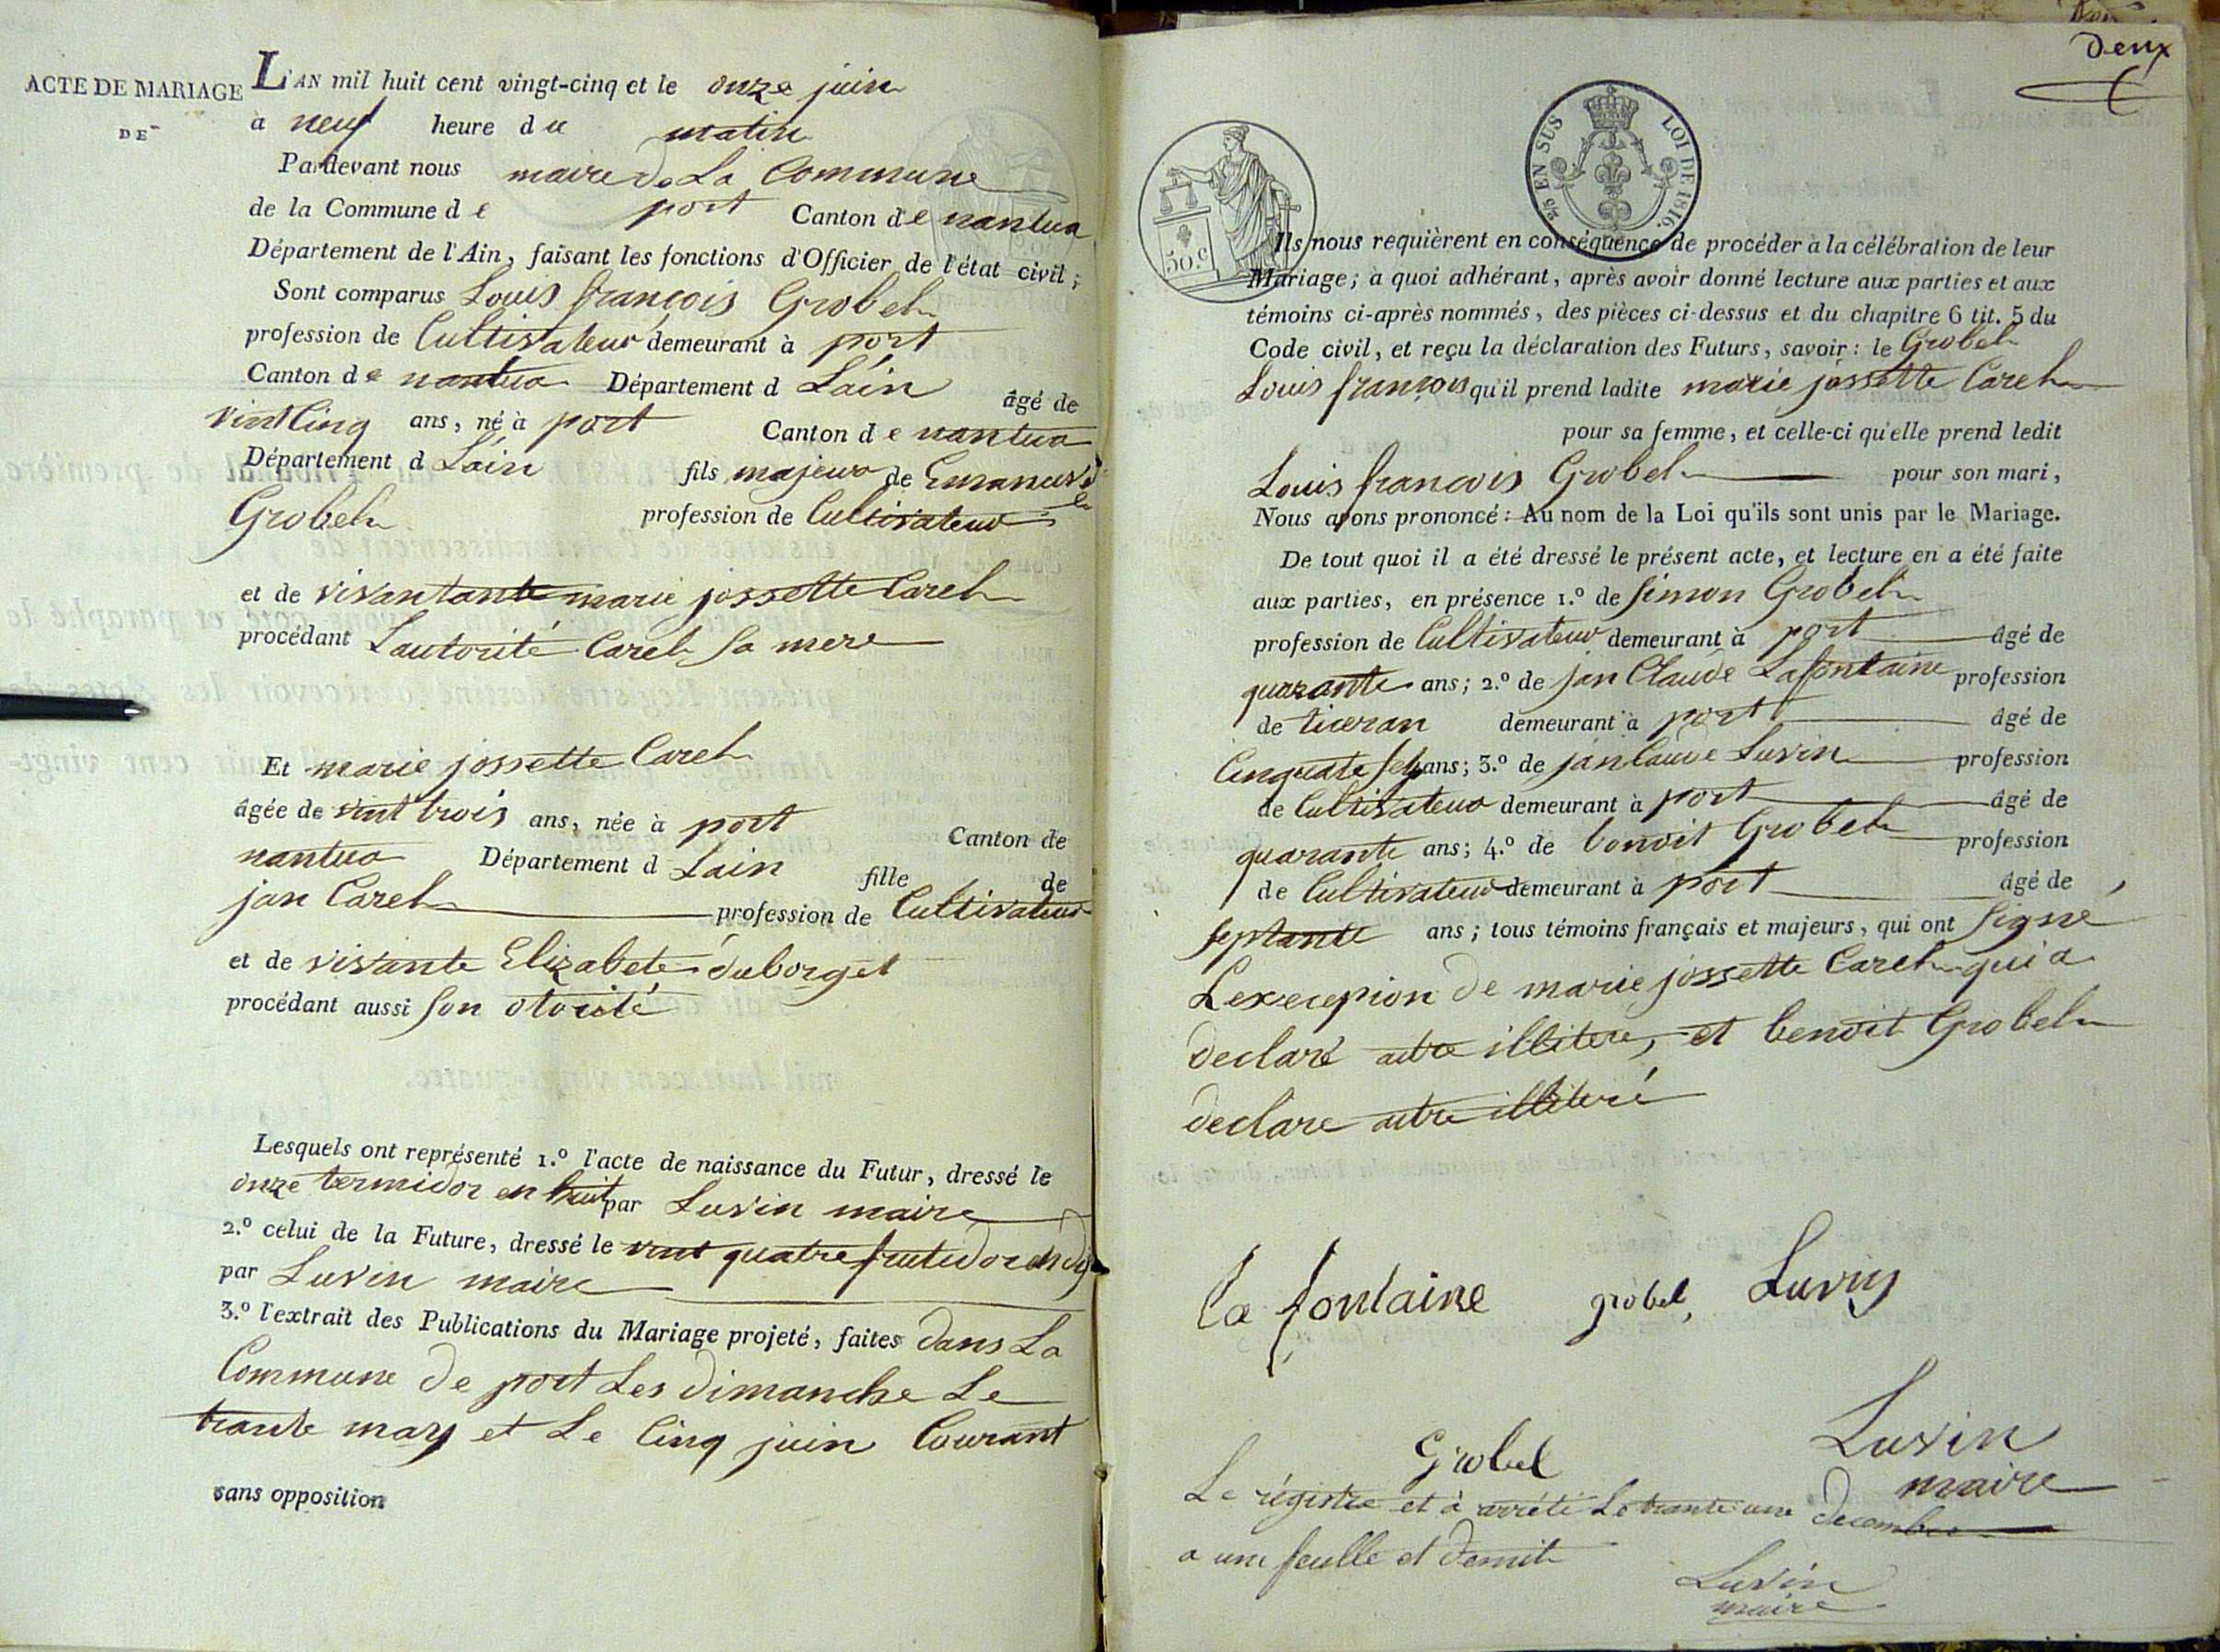 ACTE DE MARIAGE
DE
L'AN mil huit cent vingt-cinq et le onze juin
à neuf heure du matin
Pardevant nous maire de La Commune
de la Commune de port Canton de nantua
Département de l'Ain, faisant les fonctions d'Officier de l'état civil;
Sont comparus Louis françois Grobel
profession de Cultivateur demeurant à port
Canton de nantua Département d L'ain âgé de
vint Cinq ans, né à port Canton de nantua
Département d L'ain fils majeur de Emanuel
Grobel profession de Cultivateur
et de vivantante marie jossette Carel
procédant L'autorité Carel Sa mere
Et marie jossette Carel
âgée de vint trois ans, née à port Canton de
nantua Département d Lain fille de
jan Carel profession de Cultivateur
et de vivante Elizabete duborget
procédant aussi Son otorité
Lesquels ont représenté 1.º l'acte de naissance du Futur, dressé le
onze termidor en huit par Luvin maire
2.º celui de la Future, dressé le vint quatre frutidor en dix
par Luvin maire
3.º l'extrait des Publications du Mariage projeté, faites dans La
Commune de port Les dimanche Le
trante may et Le Cinq juin Courant
sans opposition
deux
EN SUS
LOI DE 1816.
50.c
Ils nous requièrent en conséquence de procéder à la célébration de leur
Mariage; à quoi adhérant, après avoir donné lecture aux parties et aux
témoins ci-après nommés, des pièces ci-dessus et du chapitre 6 tit. 5 du
Code civil, et reçu la déclaration des Futurs, savoir: le Grobel
Louis françois qu'il prend ladite marie jossette Carel
pour sa femme, et celle-ci qu'elle prend ledit
Louis francois Grobel pour son mari,
Nous avons prononcé: Au nom de la Loi qu'ils sont unis par le Mariage.
De tout quoi il a été dressé le présent acte, et lecture en a été faite
aux parties, en présence 1.º de Simon Grobel
profession de Cultivateur demeurant à port âgé de
quarante ans; 2.º de jan Claude Lafontaine profession
de ticeran demeurant à port âgé de
Cinquate Sept ans; 3.º de jan Caude Luvin profession
de Cultivateur demeurant à port âgé de
quarante ans; 4.º de benoit Grobel profession
de Cultivateur demeurant à port âgé de
septante ans; tous témoins français et majeurs, qui ont Signé
L'excepion de marie jossette Carel qui a
declaré aitre illitere, et benoit Grobel
declare aitre illiteré
la fontaine grobel, Luvin
Grobel Luvin
maire
Le régistre et à arrété Le trante une decembre
a une feulle et demit
Luvin
maire